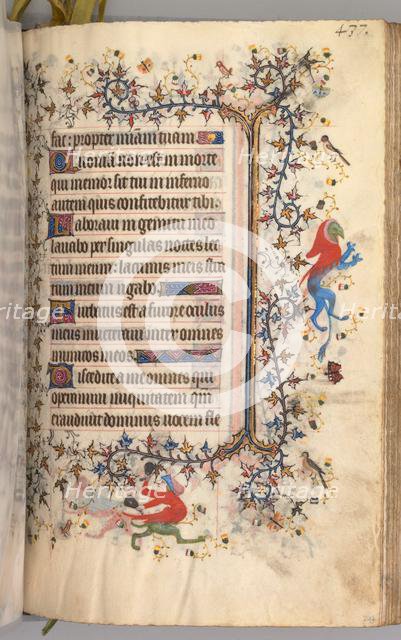 437.
fac: propter mi͞am tuam
Qm̄ non est in morte
qui memor sit tui in inferno
autem quis confitebitur tibi
Laboraui in gemitu meo
lauabo per singulas noctes lec
tum meum: lacrimis meis stra
tum meum rigabo
Turbatus est a furore oculus
meus inueteraui inter omnes
inimicos meos
Discedite a me omnes qui
operamini iniquitatem qm̄
exaudiuit dominus uocem fle
Heritage
Images
Heritage
Images
Heritage
Images